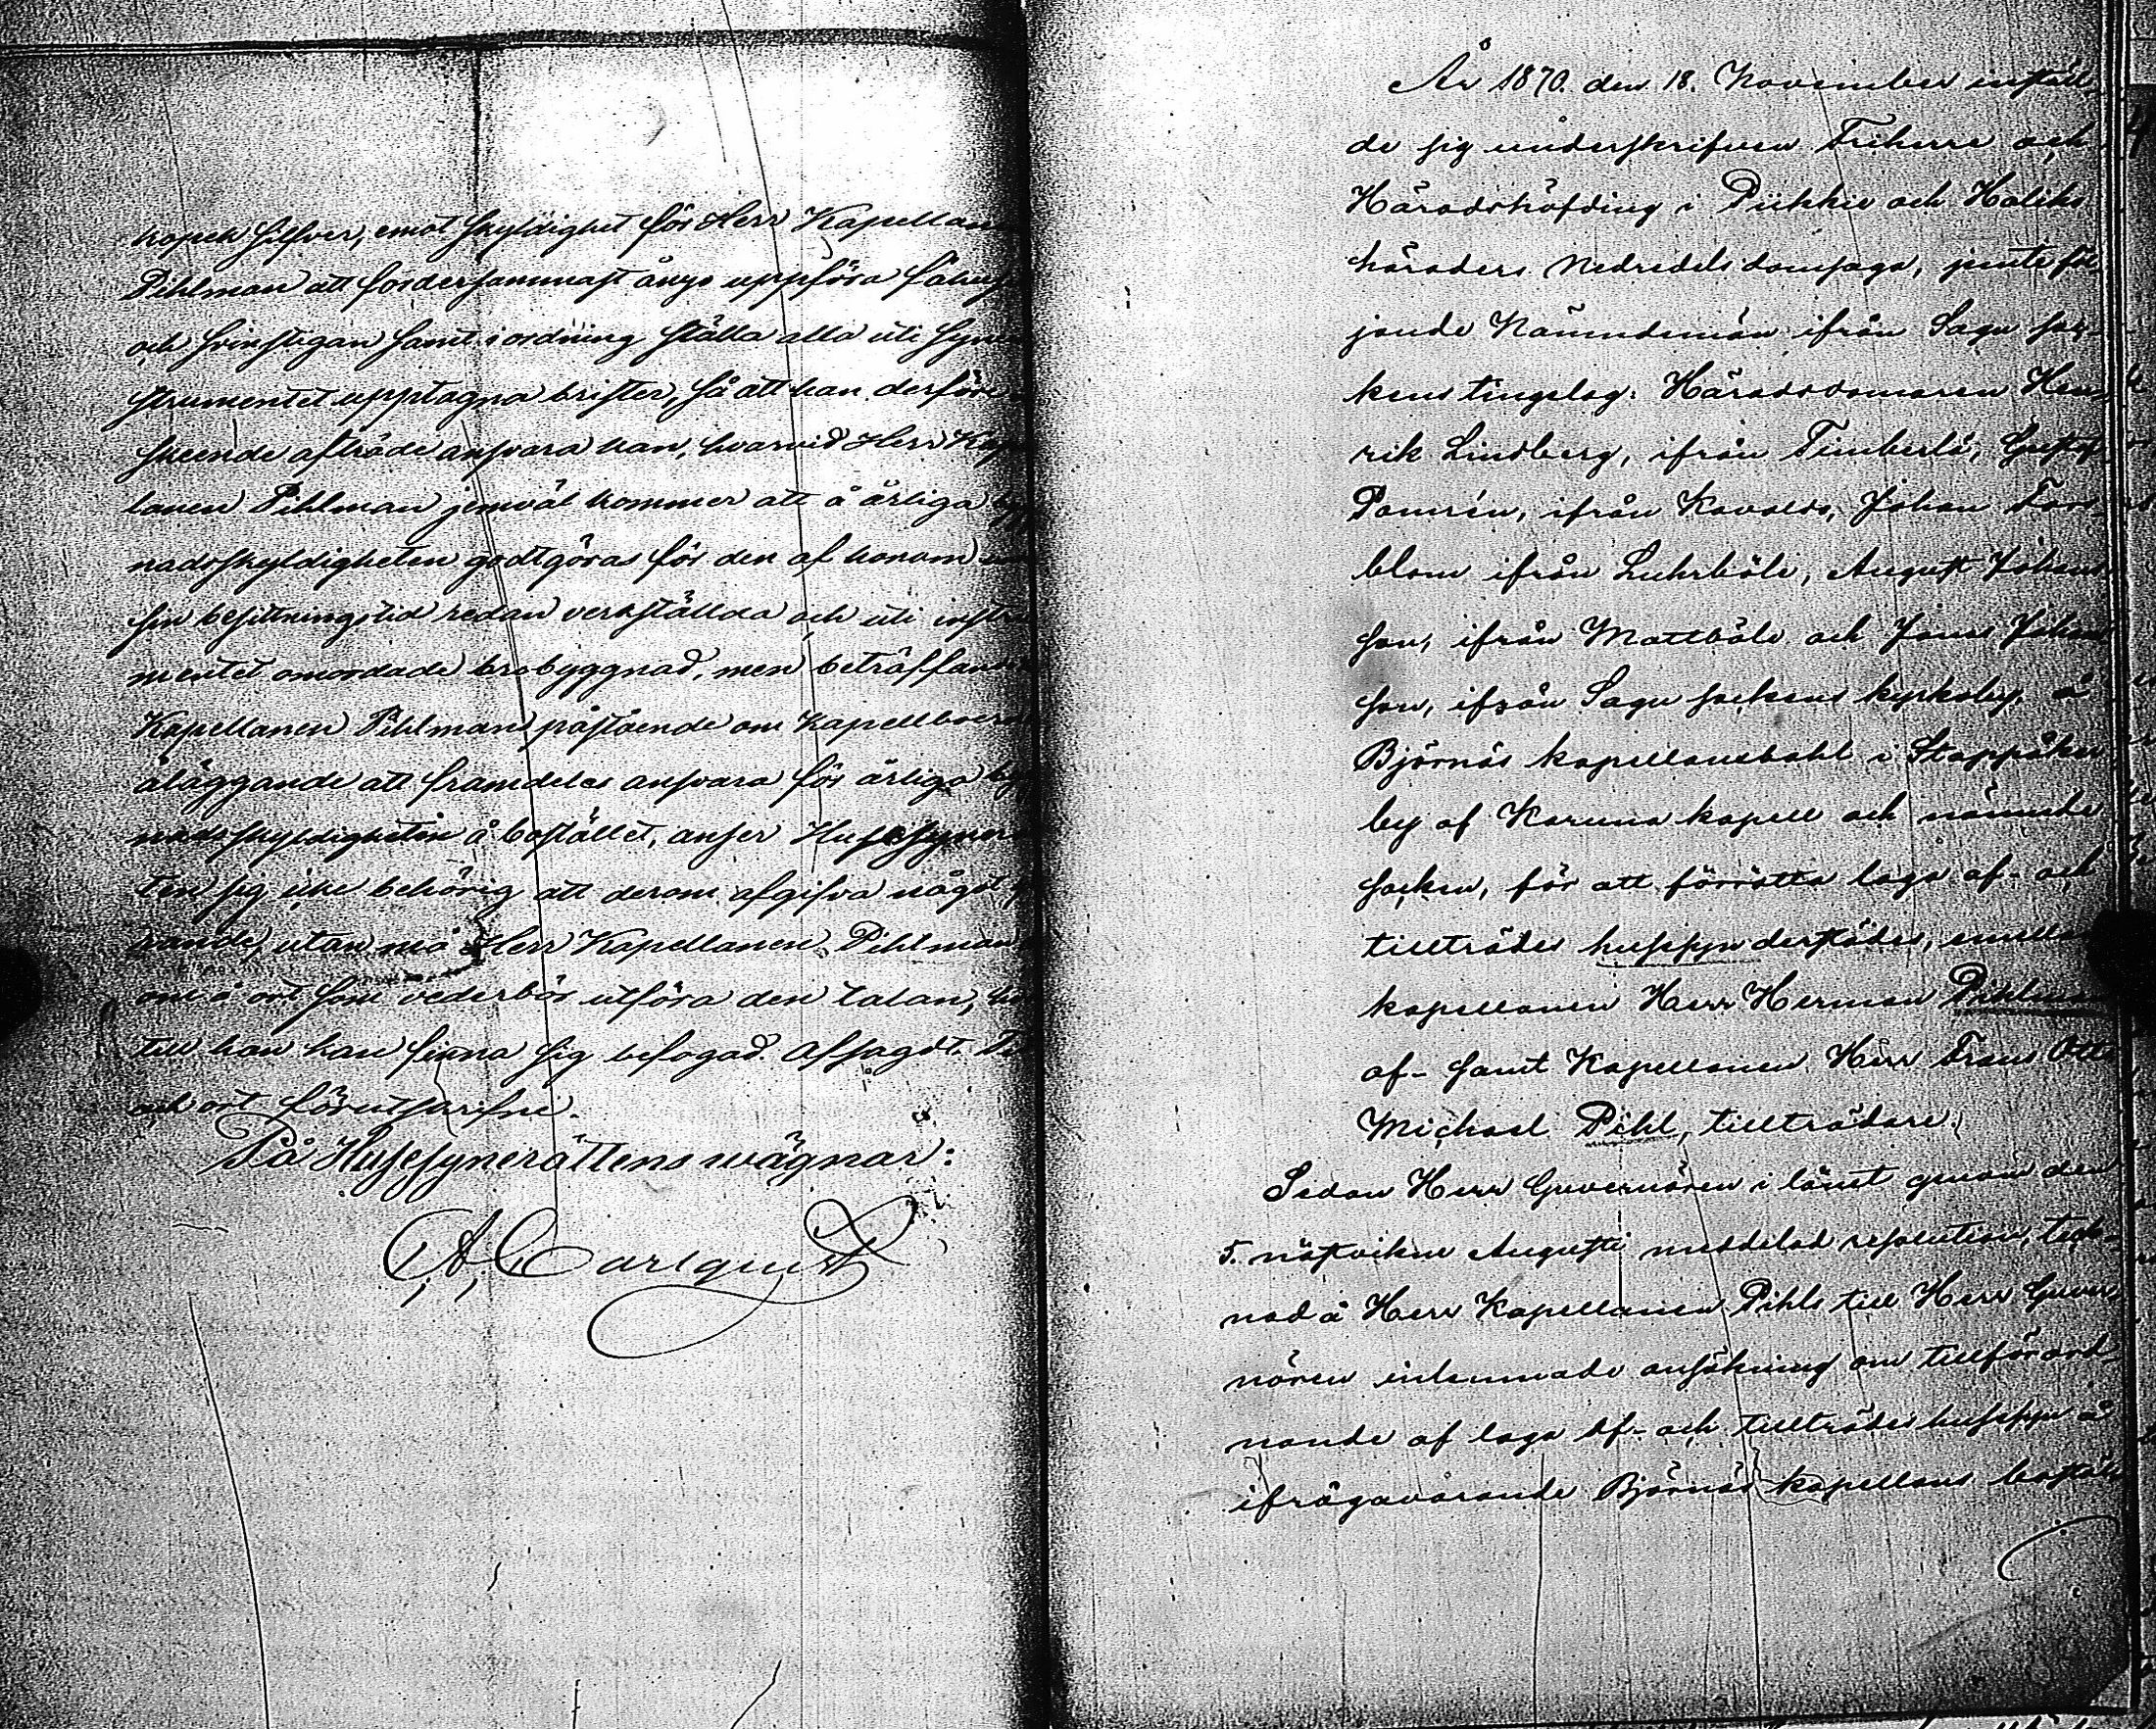 kopek silfver, emot skyldighet för Herr Kapellan
Pihlman att fordersammast ånyo uppföra fähus
och svinstigan samt i ordning ställa alla uti syne
strumentet upptagna brister, så att han derföre
skeende afträde ansvara kan, hvarvid Herr Kap
lanen Pihlman jemväl kommer att å årliga
nadsskyldigheten godtgöras för den af honom
sin besittningstid redan verkställda och uti instru
mentet omordade brobyggnad, men beträffan
Kapellanen Pihlmans påstående om Kapellboer
åläggande att framdeles ansvara för årliga by
nadsskyldigheten å bostället, anser Husesyne
ten sig icke behörig att derom afgifva något
rande, utan må Herr Kapellanen Pihlman
om å ort som vederbör utföra den talan,
till han kan finna sig befogad. Afsagdt.
och ort förutskrifne.
På Husesynerättens wägnar:
A. Carlquist
År 1870. den 18. November instäl-
de sig underskrifven Friherre och
Häradshöfding i Piikkie och Haliko
häraders Nedredels domsaga, jemte föl-
jande Nämndemän ifrån Sagu soc-
kens tingslag: Häradsdomaren Hen-
rik Lindberg, ifrån Timberla, Gustaf
Pamrén, ifrån Kavalto, Johan Fors-
blom ifrån Ruhrböle, August Johans-
son, ifrån Mattböle och Jonas Johans-
son, ifrån Sagu sockens kyrkoby, å
Björnäs kapellansbohl i Stappåker
by af Karuna kapell och nämnde
socken, för att förrätta laga af- och
tillträdes hussyn derstädes, emellan
kapellanen Herr Herman Pihlman
af- samt Kapellanen Herr Frans Otto
Michael Pihl, tillträdare.
Sedan Herr Guvernören i länet genom den
5. nästvikne Augusti meddelad resolution, teck-
nad å Herr Kapellanen Pihls till Herr Guver-
nören inlemnade ansökning om tillförord-
nande af laga Af- och tillträdes hussyn å
ifrågavarande Björnäs kapellans boställe